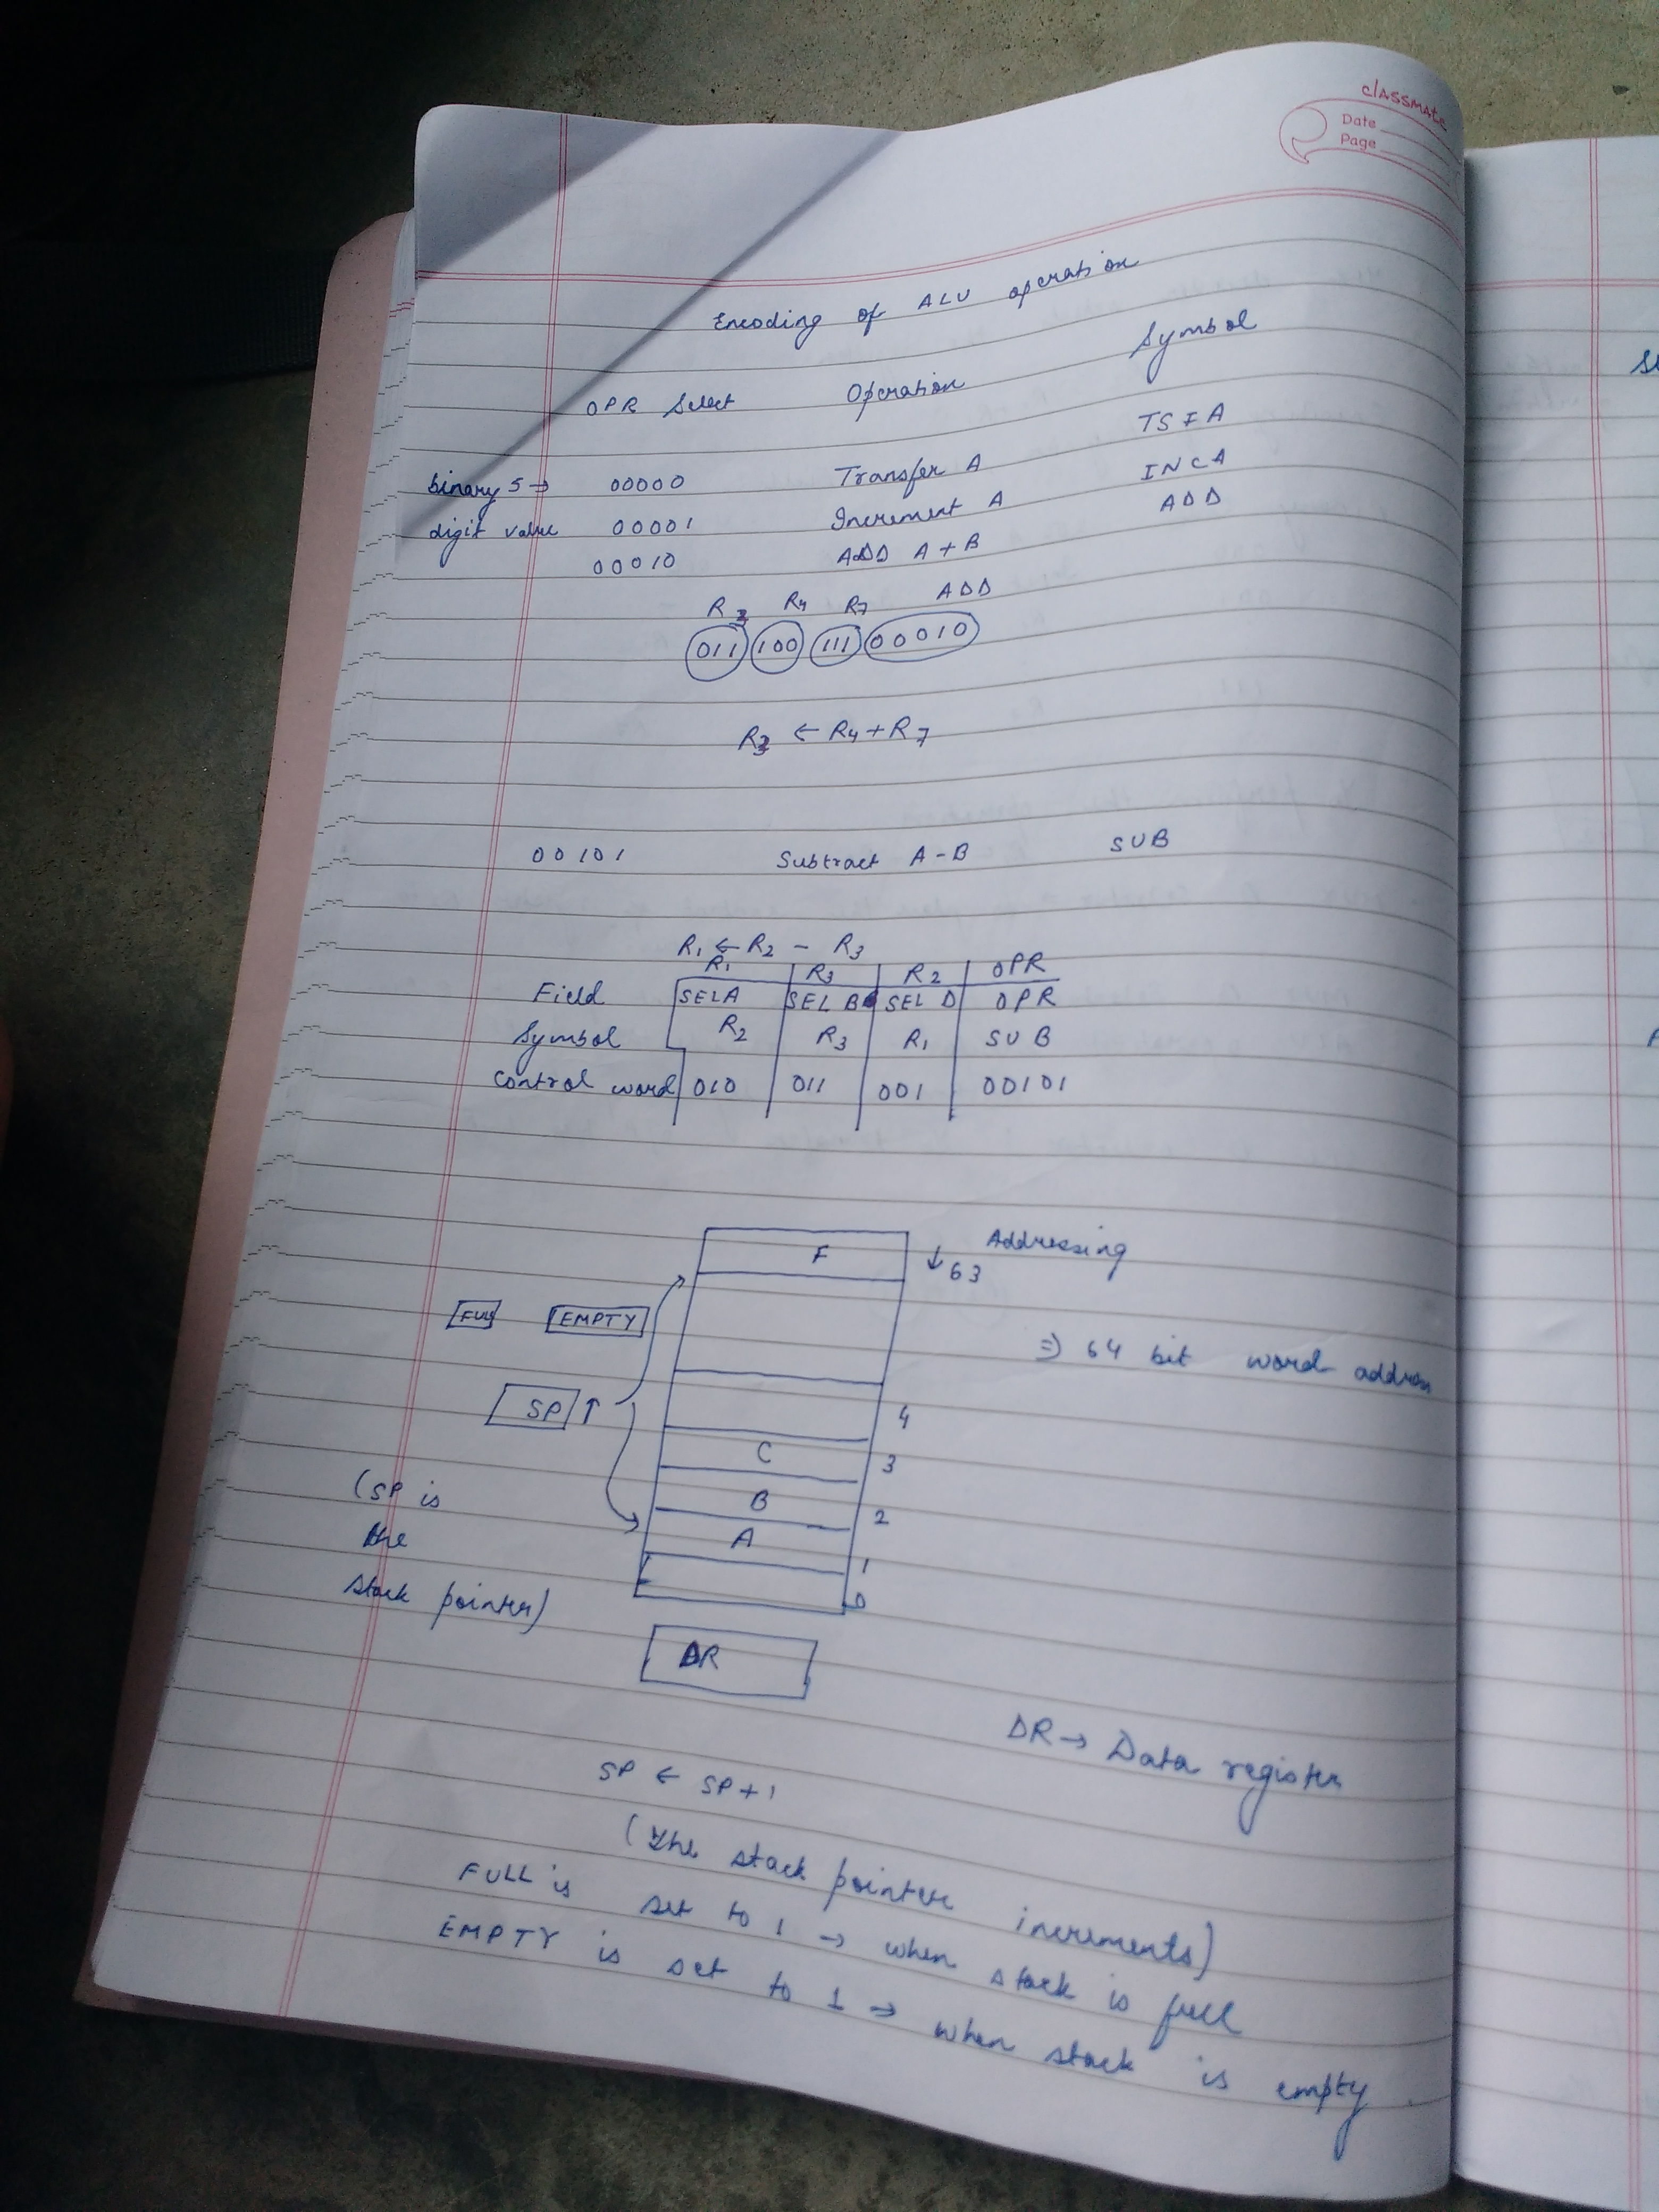 classmate
Date
Page
Encoding of ALU operation
OPR Select Operation Symbol
binary 5 → 00000 Transfer A TSFA
digit value 00001 Increment A INCA
00010 ADD A + B ADD
R3 R4 R7 ADD
011 100 111 00010
R3 ← R4 + R7
00101 Subtract A - B SUB
R1 ← R2 - R3
R1 R3 R2 OPR
Field SELA SEL B SEL D OPR
Symbol R2 R3 R1 SUB
Control word 010 011 001 00101
F ↓ 63 Addressing
FULL EMPTY
⇒ 64 bit word address
SP ↑
4
C 3
B 2
A 1
0
(SP is
the
stack pointer)
DR
DR → Data register
SP ← SP + 1
(The stack pointer increments)
FULL is set to 1 → when stack is full
EMPTY is set to 1 → when stack is empty